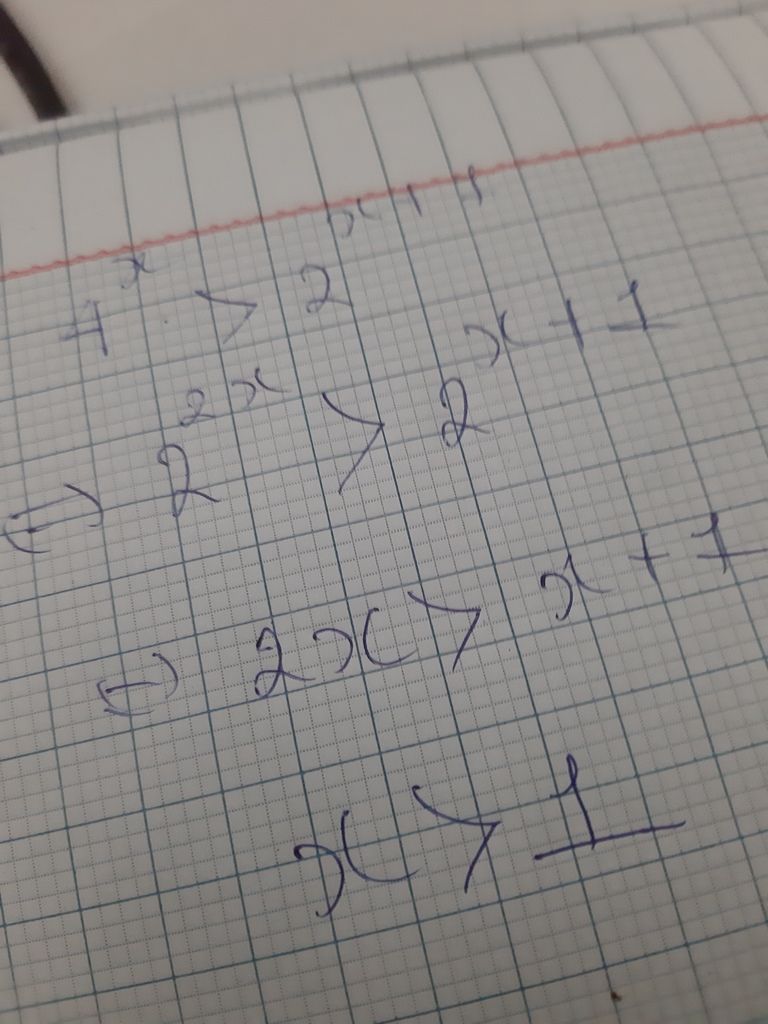 4^x > 2^{x+1}
⇔ 2^{2x} > 2^{x+1}
⇔ 2x > x+1
x > 1